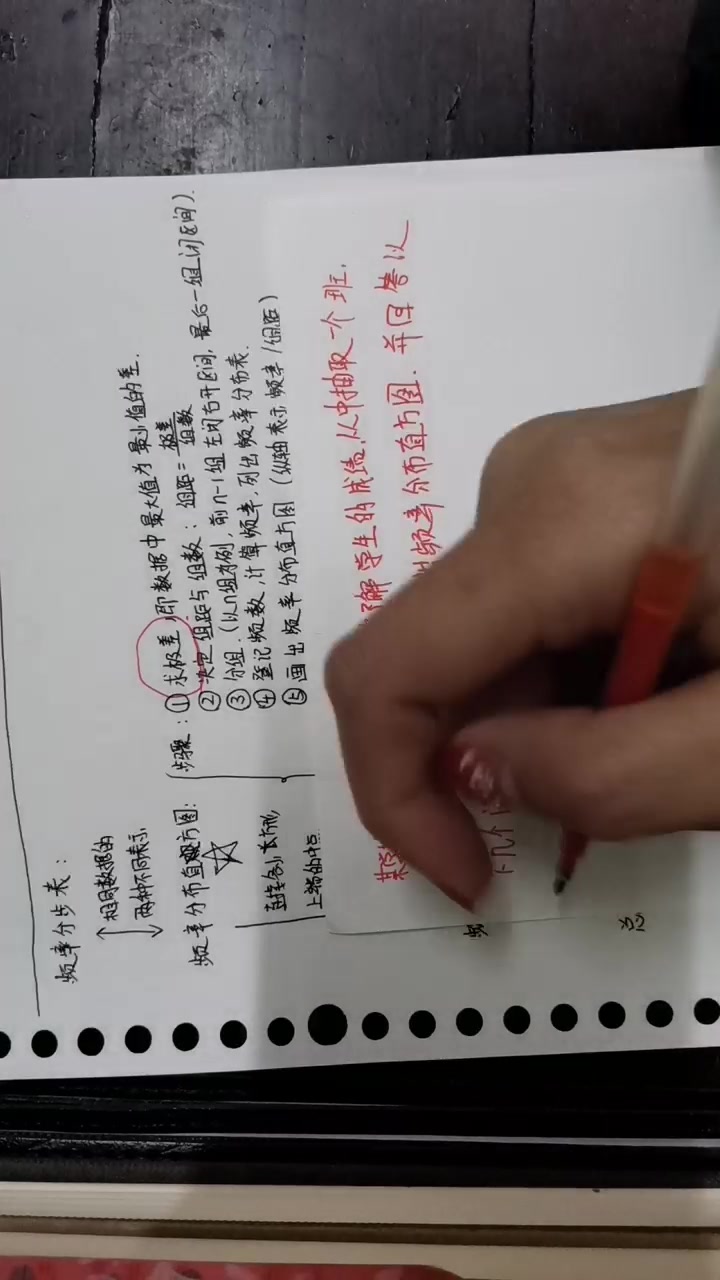 频率分步表:
相同数据的
两种不同表示
频率分布直方图:
步骤:①求极差,即数据中最大值为最小值的差.
②决定组距与组数:组距=极差/组数
③分组.(以n组为例,前n-1组左闭右开区间,最后一组闭区间).
④登记频数,计算频率,列出频率分布表.
⑤画出频率分布直方图(纵轴表示频率/组距)
直接各小长方形
上端的中点
了解学生的成绩,从中抽取一个班.
频率分布直方图.并回答以
下几个